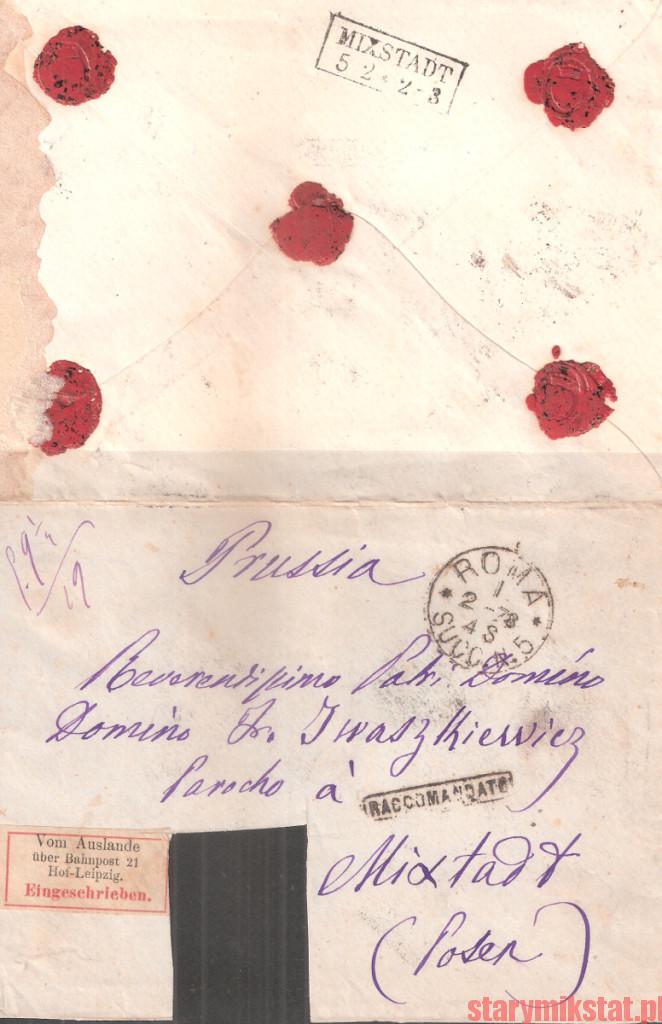 MIXSTADT
5 2 * 2-3
Prussia
ROMA
1
2 -78
4 S
SUCC. 5
Reverendissimo Patri Domino
Domino Fr. Iwaszkiewicz
Parocho à
RACCOMANDATO
Vom Auslande
über Bahnpost 21
Hof-Leipzig.
Eingeschrieben.
Mixtadt
(Posen)
starymikstat.pl